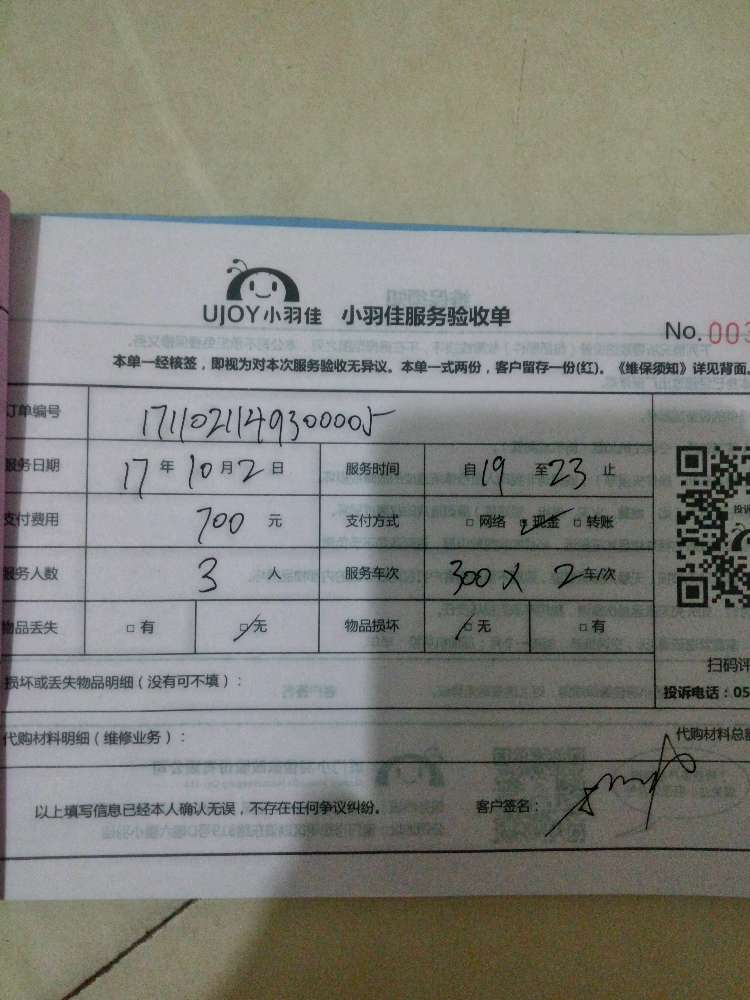 UJOY小羽佳 小羽佳服务验收单
No. 003
本单一经核签，即视为对本次服务验收无异议。本单一式两份，客户留存一份(红)。《维保须知》详见背面。
订单编号 171102114930005
服务日期 17年10月2日 服务时间 自19至23止
支付费用 700元 支付方式 □网络 ☑现金 □转账
服务人数 3人 服务车次 300X2车/次
物品丢失 □有 ☑无 物品损坏 ☑无 □有
损坏或丢失物品明细（没有可不填）：
扫码评
投诉电话：05
代购材料明细（维修业务）： 代购材料总额
以上填写信息已经本人确认无误，不存在任何争议纠纷。 客户签名：